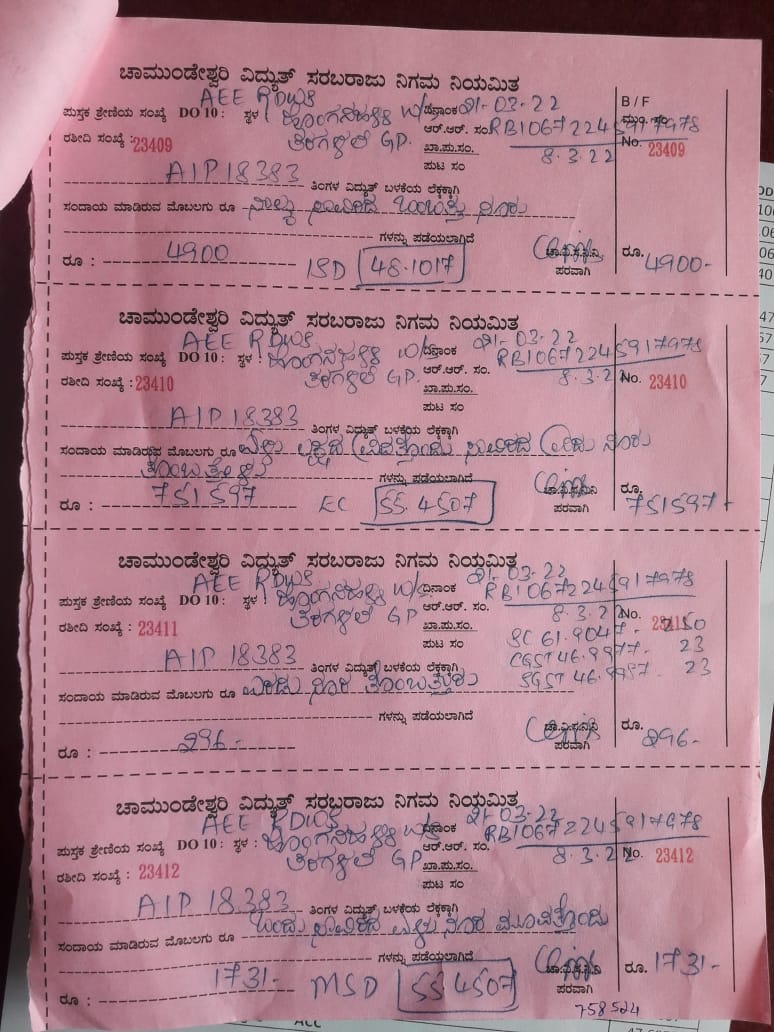 ಚಾಮುಂಡೇಶ್ವರಿ ವಿದ್ಯುತ್ ಸರಬರಾಜು ನಿಗಮ ನಿಯಮಿತ
AEE RDWS 21-03-22 B / F
ಪುಸ್ತಕ ಶ್ರೇಣಿಯ ಸಂಖ್ಯೆ DO 10 : ಸ್ಥಳ : ದಿನಾಂಕ
ರಶೀದಿ ಸಂಖ್ಯೆ : 23409 GP. ಆರ್.ಆರ್. ಸಂ. RB10672245917978 No. 23409
ಖಾ.ಪು.ಸಂ. 8.3.22
ಪುಟ ಸಂ
AIP 18383 ತಿಂಗಳ ವಿದ್ಯುತ್ ಬಳಕೆಯ ಲೆಕ್ಕಕ್ಕಾಗಿ
ಸಂದಾಯ ಮಾಡಿರುವ ಮೊಬಲಗು ರೂ ನಾಲ್ಕು ಸಾವಿರದ ಒಂಬತ್ತು ನೂರು
ಗಳನ್ನು ಪಡೆಯಲಾಗಿದೆ
ರೂ : 4900 ISD 48.1017 ಚಾ.ವಿ.ಸ.ನಿ.ನಿ ಪರವಾಗಿ ರೂ. 4900-
ಚಾಮುಂಡೇಶ್ವರಿ ವಿದ್ಯುತ್ ಸರಬರಾಜು ನಿಗಮ ನಿಯಮಿತ
AEE RDWS 21-03-22
ಪುಸ್ತಕ ಶ್ರೇಣಿಯ ಸಂಖ್ಯೆ DO 10 : ಸ್ಥಳ : ದಿನಾಂಕ RB10672245917978
ರಶೀದಿ ಸಂಖ್ಯೆ : 23410 GP. ಆರ್.ಆರ್. ಸಂ. 8.3.22 No. 23410
ಖಾ.ಪು.ಸಂ.
ಪುಟ ಸಂ
AIP 18383 ತಿಂಗಳ ವಿದ್ಯುತ್ ಬಳಕೆಯ ಲೆಕ್ಕಕ್ಕಾಗಿ
ಸಂದಾಯ ಮಾಡಿರುವ ಮೊಬಲಗು ರೂ ಏಳು ಲಕ್ಷದ ಐವತ್ತೊಂದು ಸಾವಿರದ ಐದು ನೂರು
ತೊಂಬತ್ತೇಳು ಗಳನ್ನು ಪಡೆಯಲಾಗಿದೆ
ರೂ : 751597 EC 55.4507 ಚಾ.ವಿ.ಸ.ನಿ.ನಿ ಪರವಾಗಿ ರೂ. 751597-
ಚಾಮುಂಡೇಶ್ವರಿ ವಿದ್ಯುತ್ ಸರಬರಾಜು ನಿಗಮ ನಿಯಮಿತ
AEE RDWS 21-03-22
ಪುಸ್ತಕ ಶ್ರೇಣಿಯ ಸಂಖ್ಯೆ DO 10 : ಸ್ಥಳ : ದಿನಾಂಕ RB10672245917978
ರಶೀದಿ ಸಂಖ್ಯೆ : 23411 GP ಆರ್.ಆರ್. ಸಂ. 8.3.22 No.
ಖಾ.ಪು.ಸಂ. SC 61.9047- 250
ಪುಟ ಸಂ CGST 46.9977- 23
AIP 18383 ತಿಂಗಳ ವಿದ್ಯುತ್ ಬಳಕೆಯ ಲೆಕ್ಕಕ್ಕಾಗಿ SGST 46.9987- 23
ಸಂದಾಯ ಮಾಡಿರುವ ಮೊಬಲಗು ರೂ ಎರಡು ನೂರ ತೊಂಬತ್ತಾರು
ಗಳನ್ನು ಪಡೆಯಲಾಗಿದೆ
ರೂ : 296- ಚಾ.ವಿ.ಸ.ನಿ.ನಿ ಪರವಾಗಿ ರೂ. 296-
ಚಾಮುಂಡೇಶ್ವರಿ ವಿದ್ಯುತ್ ಸರಬರಾಜು ನಿಗಮ ನಿಯಮಿತ
AEE RDWS 21-03-22
ಪುಸ್ತಕ ಶ್ರೇಣಿಯ ಸಂಖ್ಯೆ DO 10 : ಸ್ಥಳ : ದಿನಾಂಕ RB10672245917978
ರಶೀದಿ ಸಂಖ್ಯೆ : 23412 GP ಆರ್.ಆರ್. ಸಂ. 8.3.22 No. 23412
ಖಾ.ಪು.ಸಂ.
ಪುಟ ಸಂ
AIP 18383 ತಿಂಗಳ ವಿದ್ಯುತ್ ಬಳಕೆಯ ಲೆಕ್ಕಕ್ಕಾಗಿ
ಸಂದಾಯ ಮಾಡಿರುವ ಮೊಬಲಗು ರೂ ಒಂದು ಸಾವಿರದ ಏಳು ನೂರ ಮೂವತ್ತೊಂದು
ಗಳನ್ನು ಪಡೆಯಲಾಗಿದೆ
ರೂ : 1731- MSD 55.4507 ಚಾ.ವಿ.ಸ.ನಿ.ನಿ ಪರವಾಗಿ ರೂ. 1731-
758524